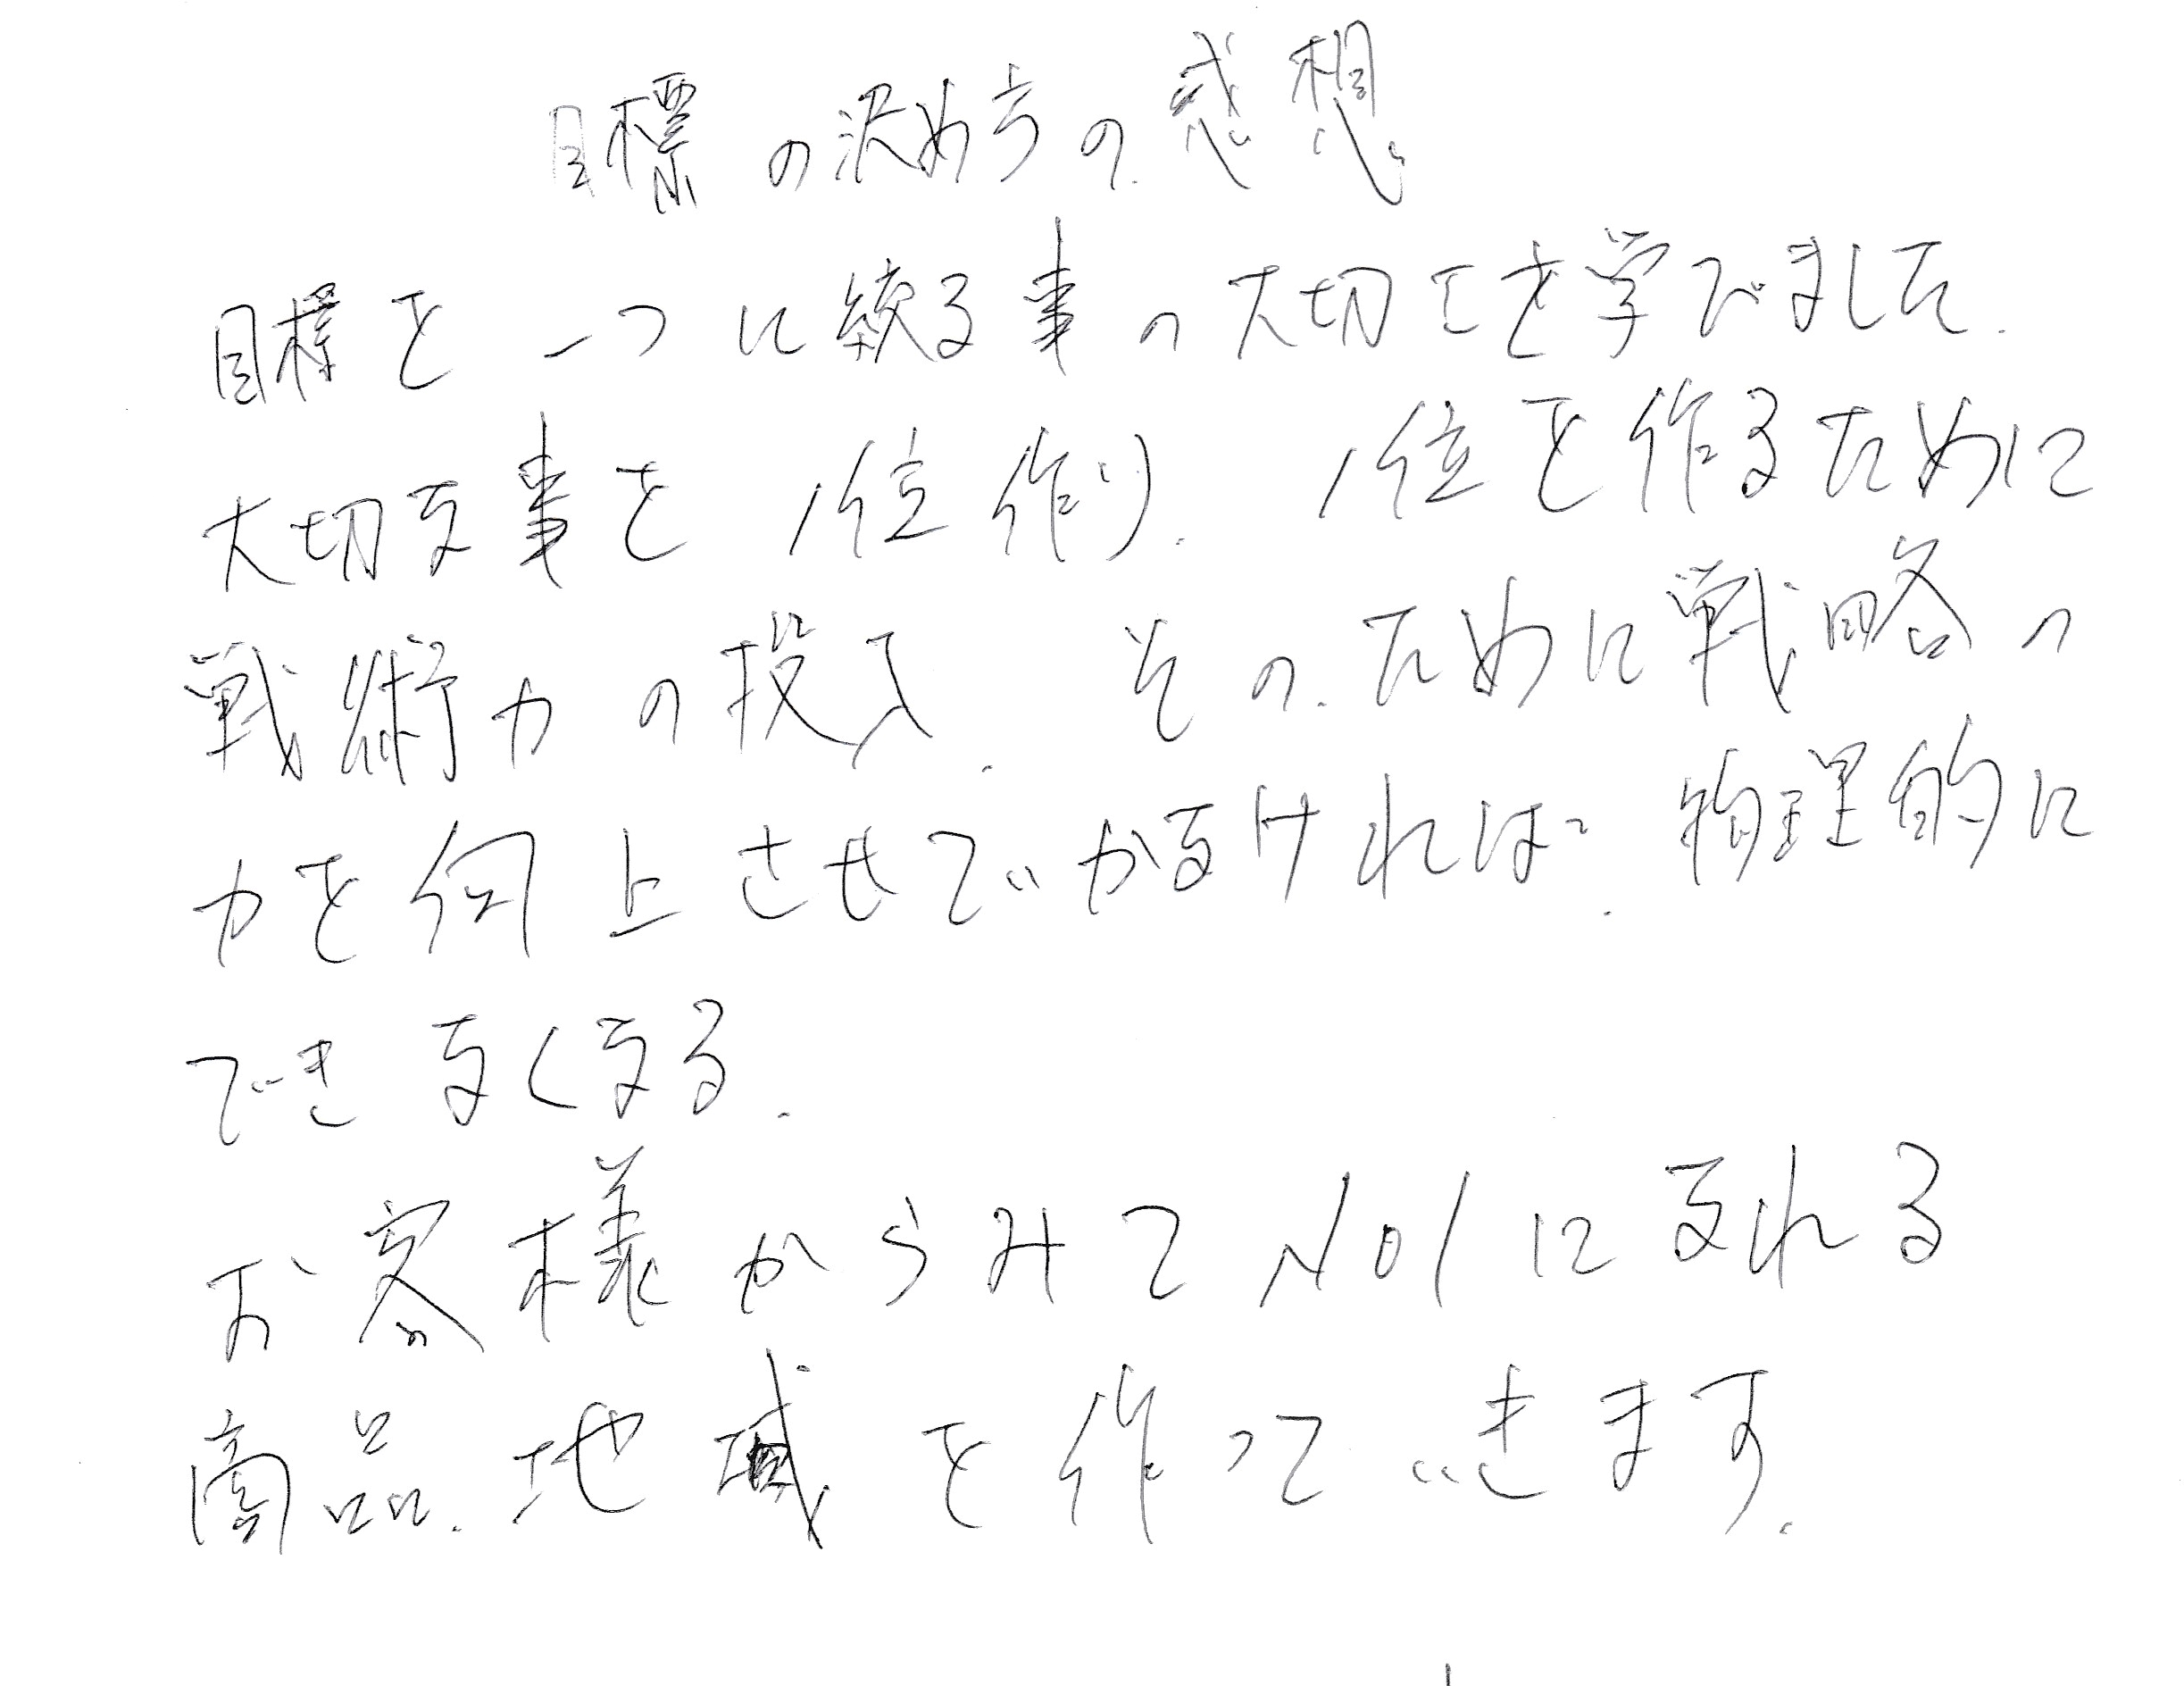 目標の決め方の感想
目標を一つに絞る事の大切さを学びました.
大切な事を1位作り. 1位を作るために
戦術力の投入. そのために戦略の
力を向上させていかなければ. 物理的に
できなくなる.
お客様からみてNO1になれる
商品.地域を作っていきます.